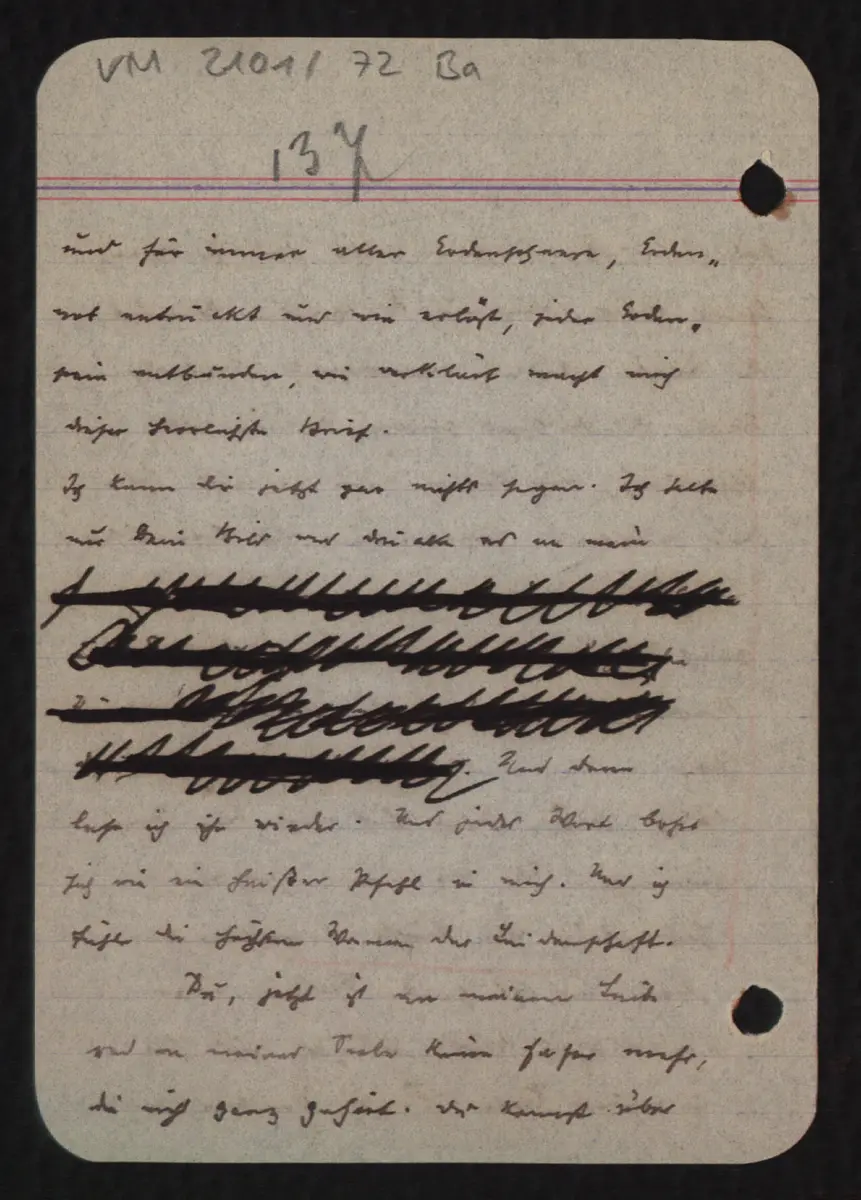 VM 2101 / 72 Ba
137
und für immer aller Erdenschwere, Erden„
not entrückt und wie erlöst, jeder Erden„
pein entbunden, wie verklärt macht mich
dieser herrlichste Brief.
Ich kann Dir jetzt gar nichts sagen. Ich
nur Dein Bild und drücke es an mein
Und dann
lese ich ihn wieder. Und jedes Wort bohrt
sich wie ein heißer Pfahl in mich. Und ich
fühle die höchsten Wonnen der Leidenschaft.
Du, jetzt ist an meinem Leibe
und an meiner Seele keine Faser mehr,
die nicht ganz gehört. Du kannst über